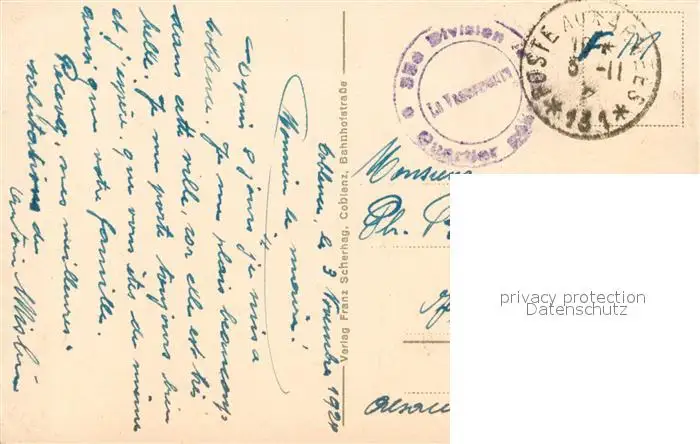 Coblence, le 3 Novembre 1920
Monsieur le maire,
Depuis 8 jours je suis a
Coblence. Je me plais beaucoup
dans cette ville, car elle est très
belle. Je me porte toujours bien
et j'espère que vous êtes de même
ainsi que votre famille.
Recevez mes meilleures
salutations de
Antoine
Verlag Franz Scherhag, Coblenz, Bahnhofstraße
Division
Quartier
Le Vaguemestre
POSTE AUX ARMEES
8 -11
*131*
F M
Monsieur
Ph.
Alsace
privacy protection
Datenschutz